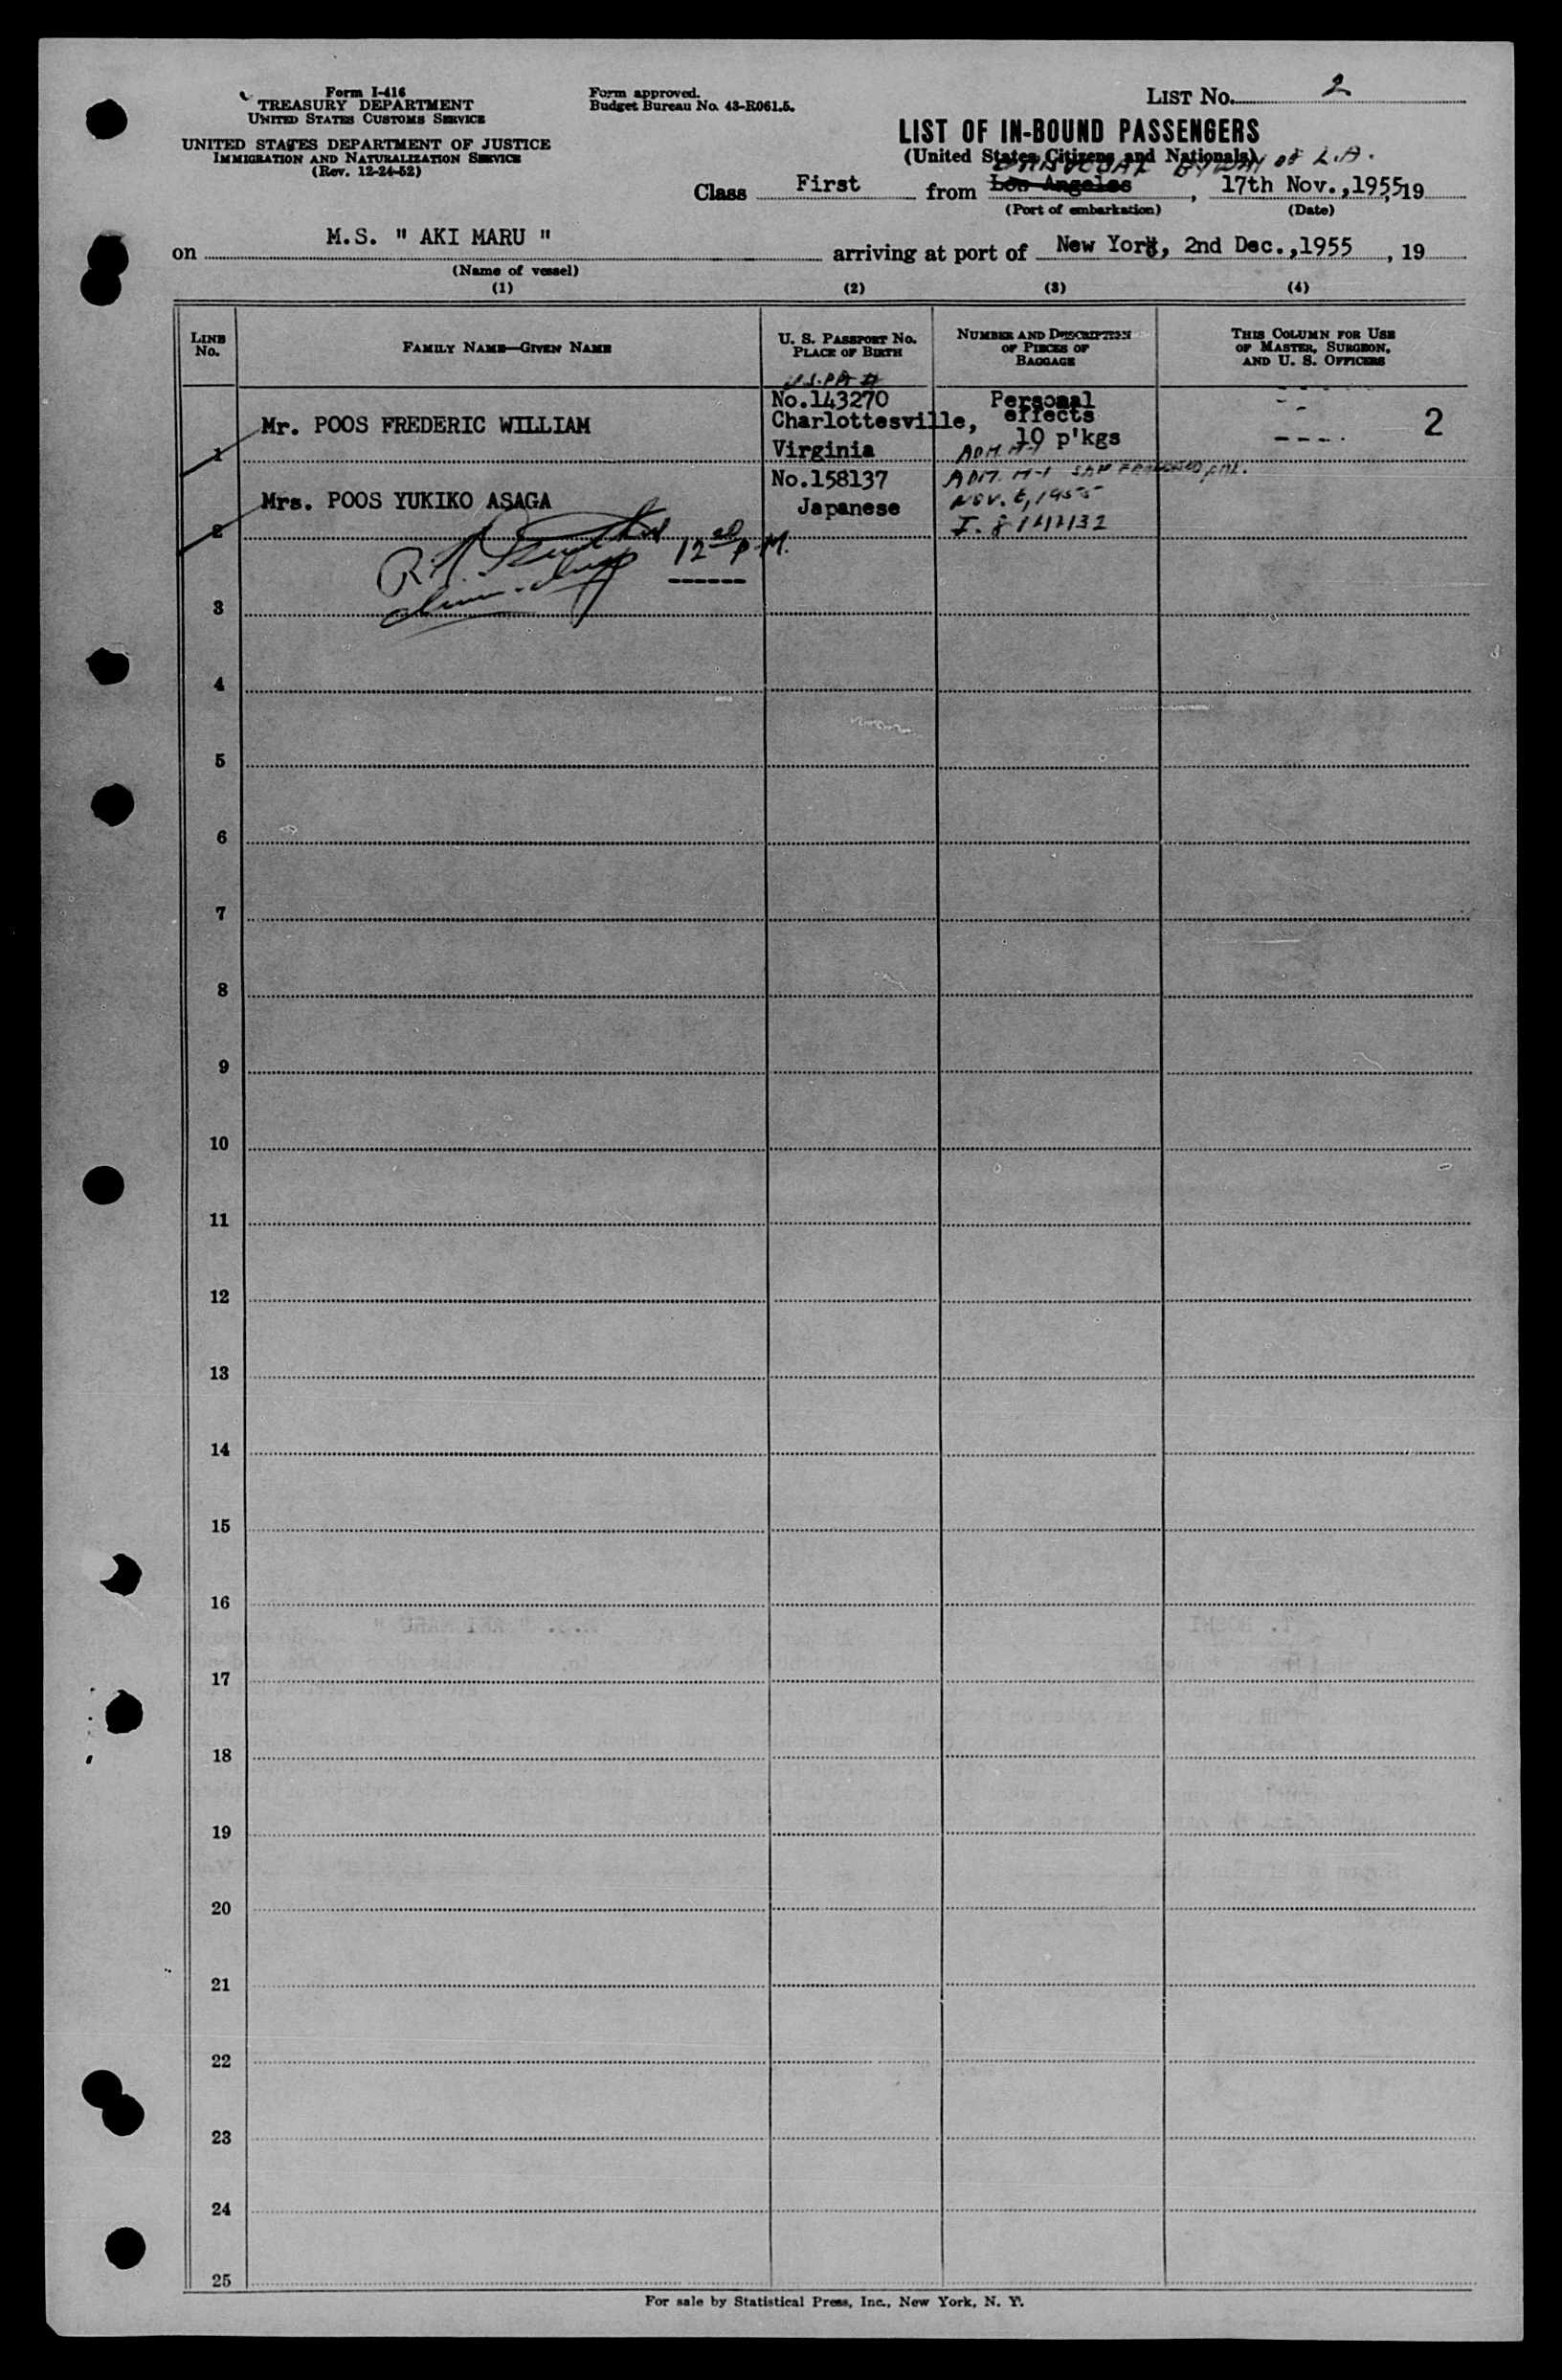 Form I-416
TREASURY DEPARTMENT
UNITED STATES CUSTOMS SERVICE
UNITED STATES DEPARTMENT OF JUSTICE
IMMIGRATION AND NATURALIZATION SERVICE
(Rev. 12-24-52)
Form approved.
Budget Bureau No. 43-R061.5.
LIST NO. 2
LIST OF IN-BOUND PASSENGERS
(United States Citizens and Nationals)
BY WAY OF L.A.
Class First from Los Angeles, 17th Nov.,1955, 19
(Port of embarkation) (Date)
on M.S. " AKI MARU " arriving at port of New York, 2nd Dec.,1955, 19
(Name of vessel)
(1) (2) (3) (4)
LINE No.
FAMILY NAME—GIVEN NAME
U. S. PASSPORT NO.
PLACE OF BIRTH
NUMBER AND DESCRIPTION
OF PIECES OF
BAGGAGE
THIS COLUMN FOR USE
OF MASTER, SURGEON,
AND U. S. OFFICERS
U.S. PPT #
1 Mr. POOS FREDERIC WILLIAM
No.143270
Charlottesville,
Virginia
Personal
effects
10 p'kgs
2
2 Mrs. POOS YUKIKO ASAGA
No.158137
Japanese
ADM. SAN FRANCISCO, CAL.
NOV. 6, 1955
12 P.M.
3
4
5
6
7
8
9
10
11
12
13
14
15
16
17
18
19
20
21
22
23
24
25
For sale by Statistical Press, Inc., New York, N. Y.